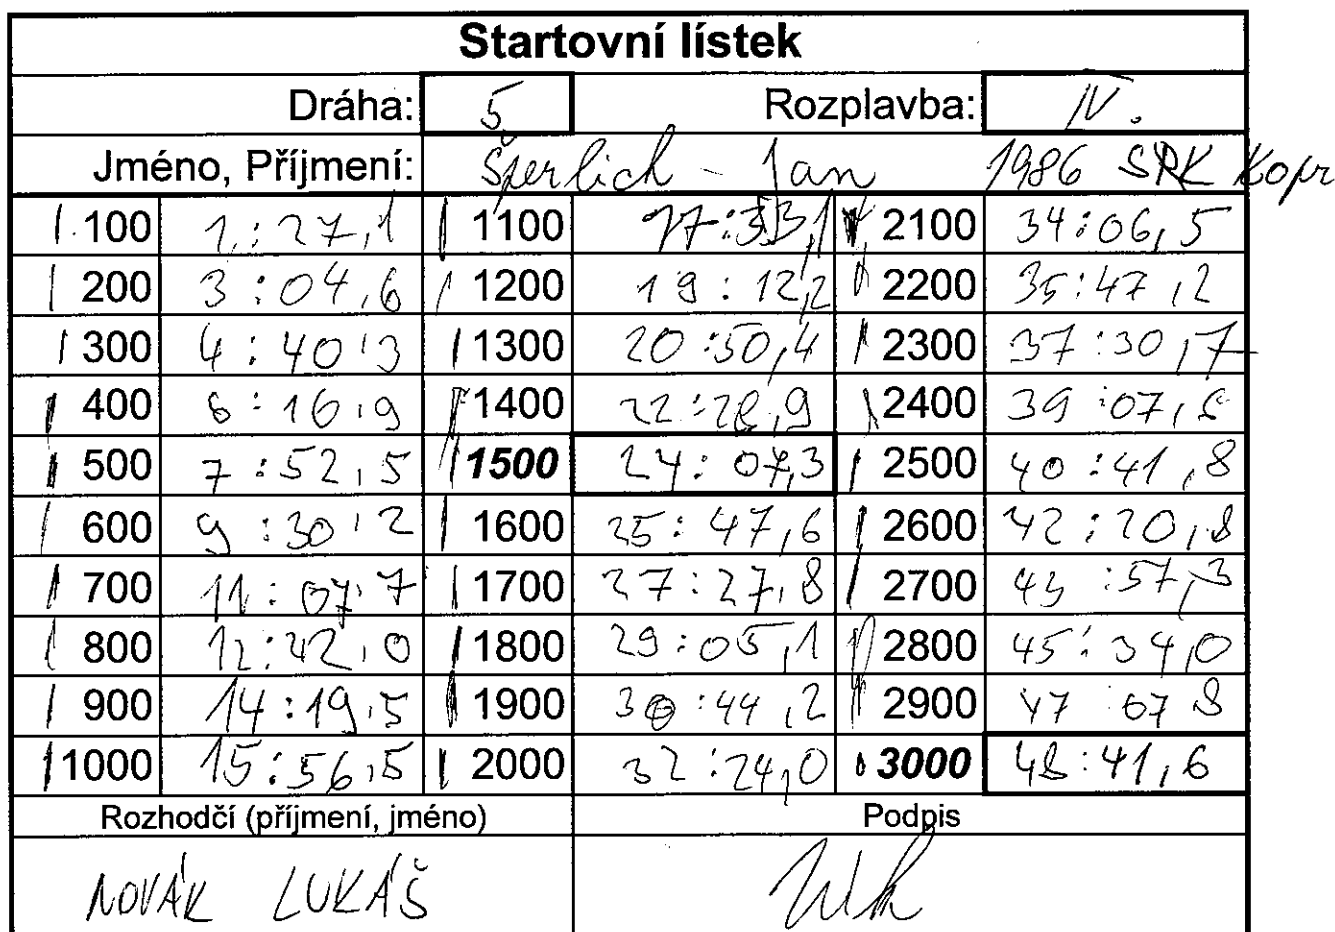 Startovní lístek
Dráha: 5 Rozplavba: IV.
Jméno, Příjmení: Šperlich - Jan 1986 SPK Kopr
100 1:27,1 1100 17:33,1 2100 34:06,5
200 3:04,6 1200 19:12,2 2200 35:47,2
300 4:40,3 1300 20:50,4 2300 37:30,7
400 6:16,9 1400 22:28,9 2400 39:07,8
500 7:52,5 1500 24:07,3 2500 40:41,8
600 9:30,2 1600 25:47,6 2600 42:20,8
700 11:07,7 1700 27:27,8 2700 43:57,3
800 12:42,0 1800 29:05,1 2800 45:34,0
900 14:19,5 1900 30:44,2 2900 47 07 8
1000 15:56,5 2000 32:24,0 3000 48:41,6
Rozhodčí (příjmení, jméno) Podpis
NOVÁK LUKÁŠ